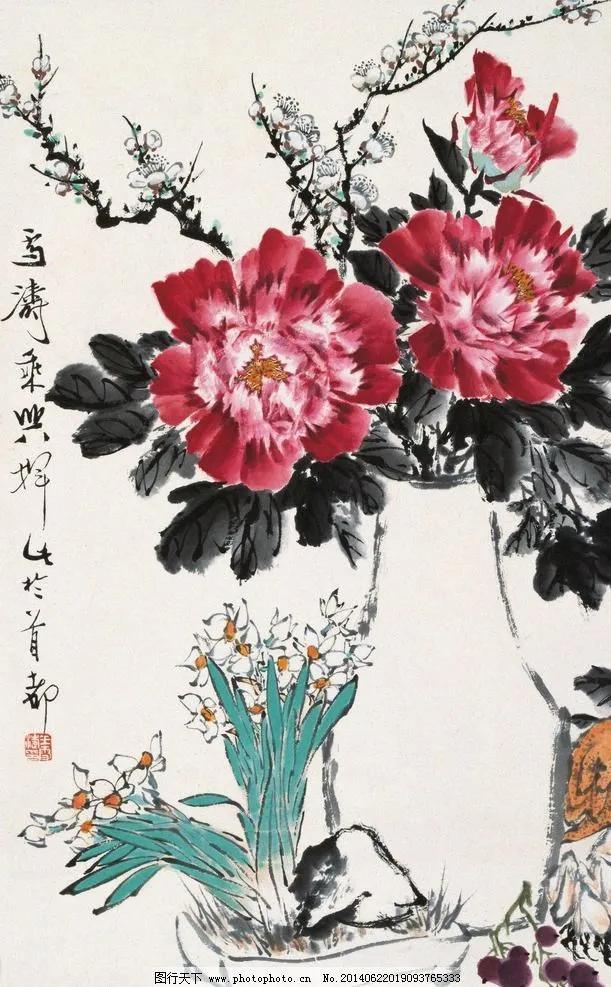 雪涛乘兴挥
作于首都
图行天下 www.photophoto.cn No.20140622019093765333